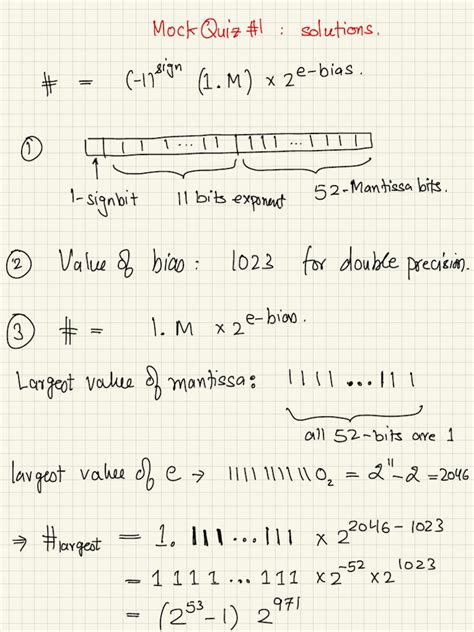 Mock Quiz #1 : solutions.
# = (-1)^sign (1.M) × 2^e-bias.
① 1 1 1 ... 1 1 1 1 1 ... 1 1 1 1
1-signbit 11 bits exponent 52-Mantissa bits.
② Value of bias : 1023 for double precision.
③ # = 1.M × 2^e-bias.
Largest value of mantissa: 1111...111
all 52-bits are 1
largest value of e → 11111111110₂ = 2^11-2 = 2046
⇒ #largest = 1.111...111 × 2^2046-1023
= 1111...111 × 2^-52 × 2^1023
= (2^53-1) 2^971